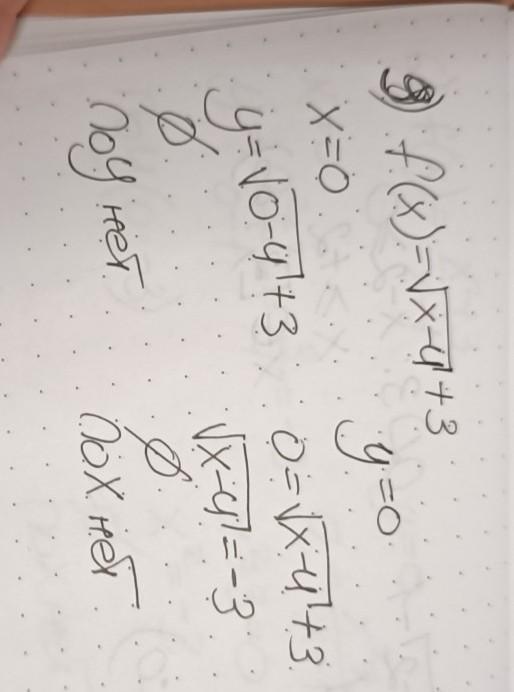 g) f(x)=√x-4+3
x=0
y=√0-4+3
∅
по y нет
y=0
0=√x-4+3
√x-4=-3
∅
по x нет